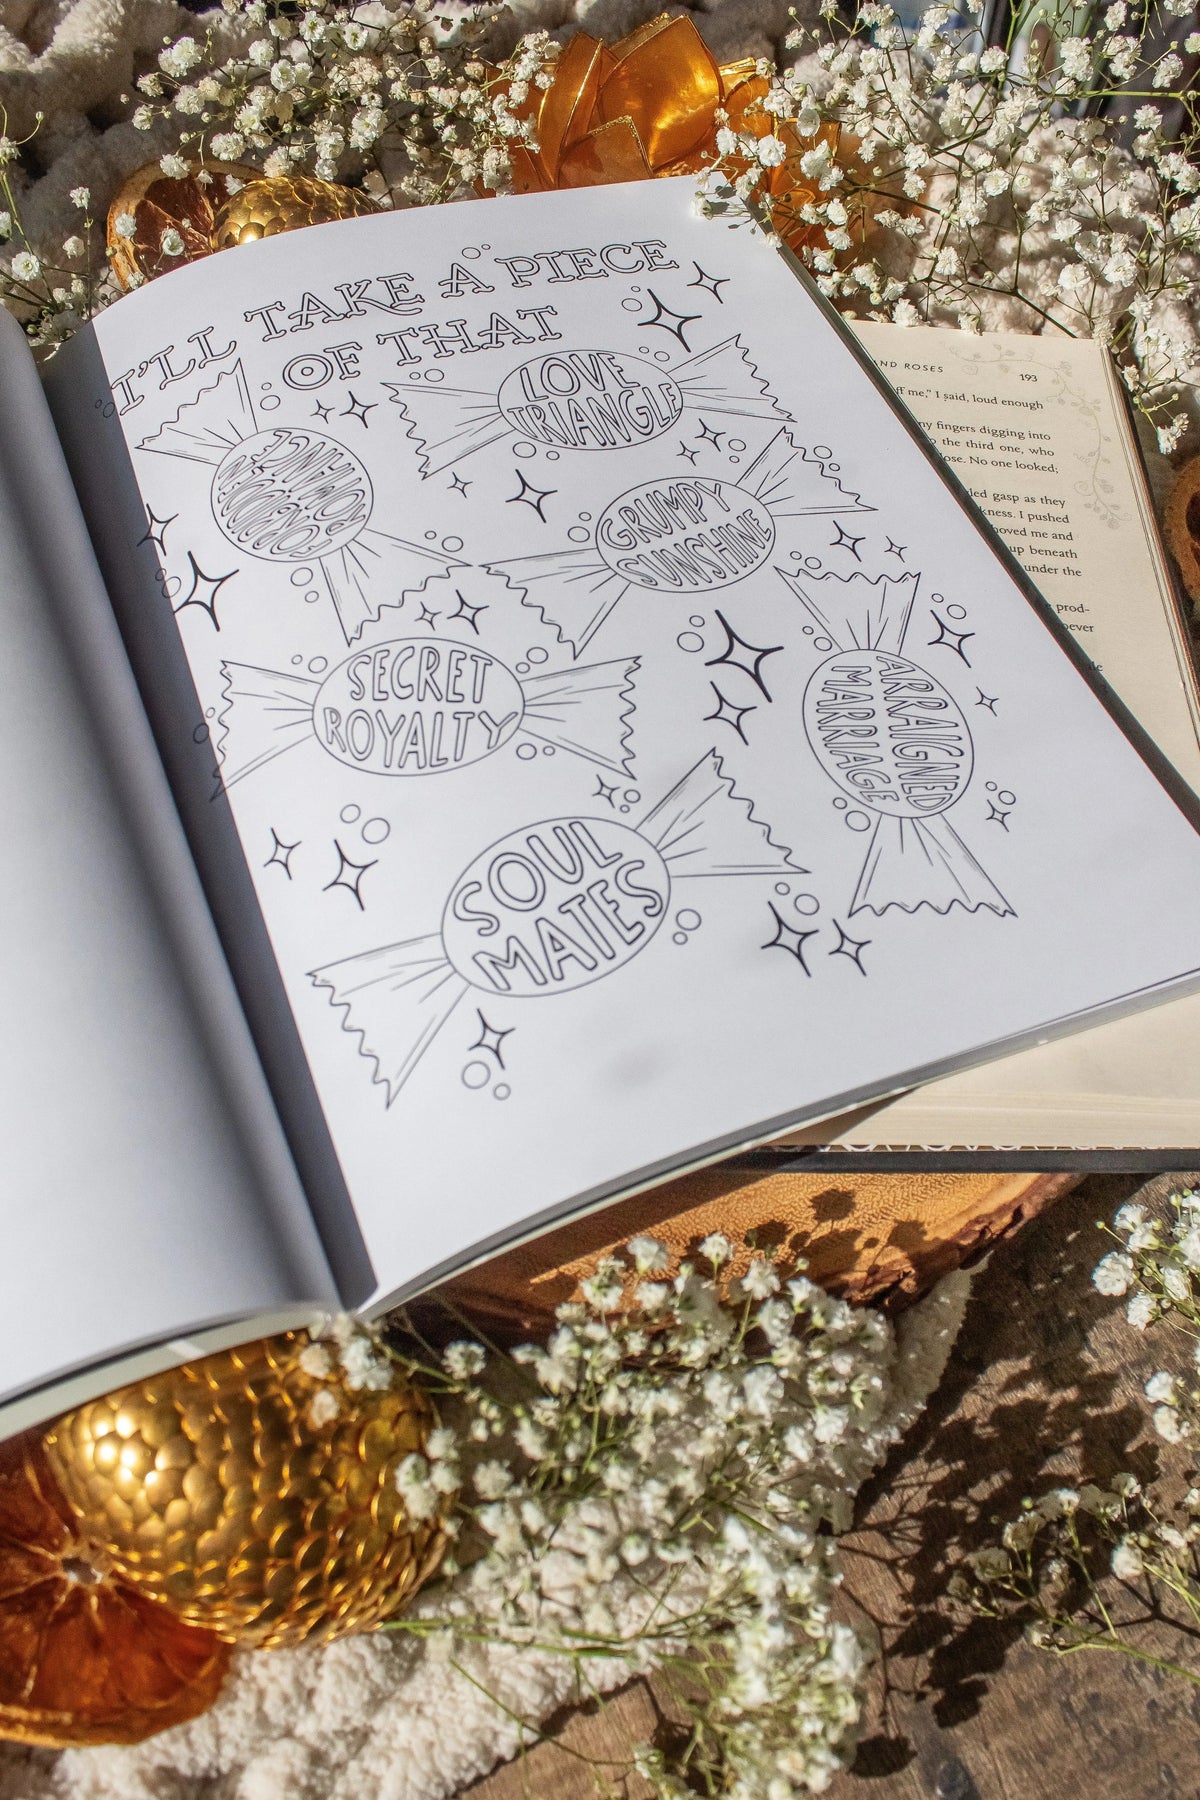 I'LL TAKE A PIECE
OF THAT
LOVE
TRIANGLE
FORBIDDEN
ROMANCE
GRUMPY
SUNSHINE
SECRET
ROYALTY
ARRAIGNED
MARRIAGE
SOUL
MATES
AND ROSES 193
me," I said, loud enough
fingers digging into
the third one, who
No one looked;
gasp as they
I pushed
me and
up beneath
under the
prod-